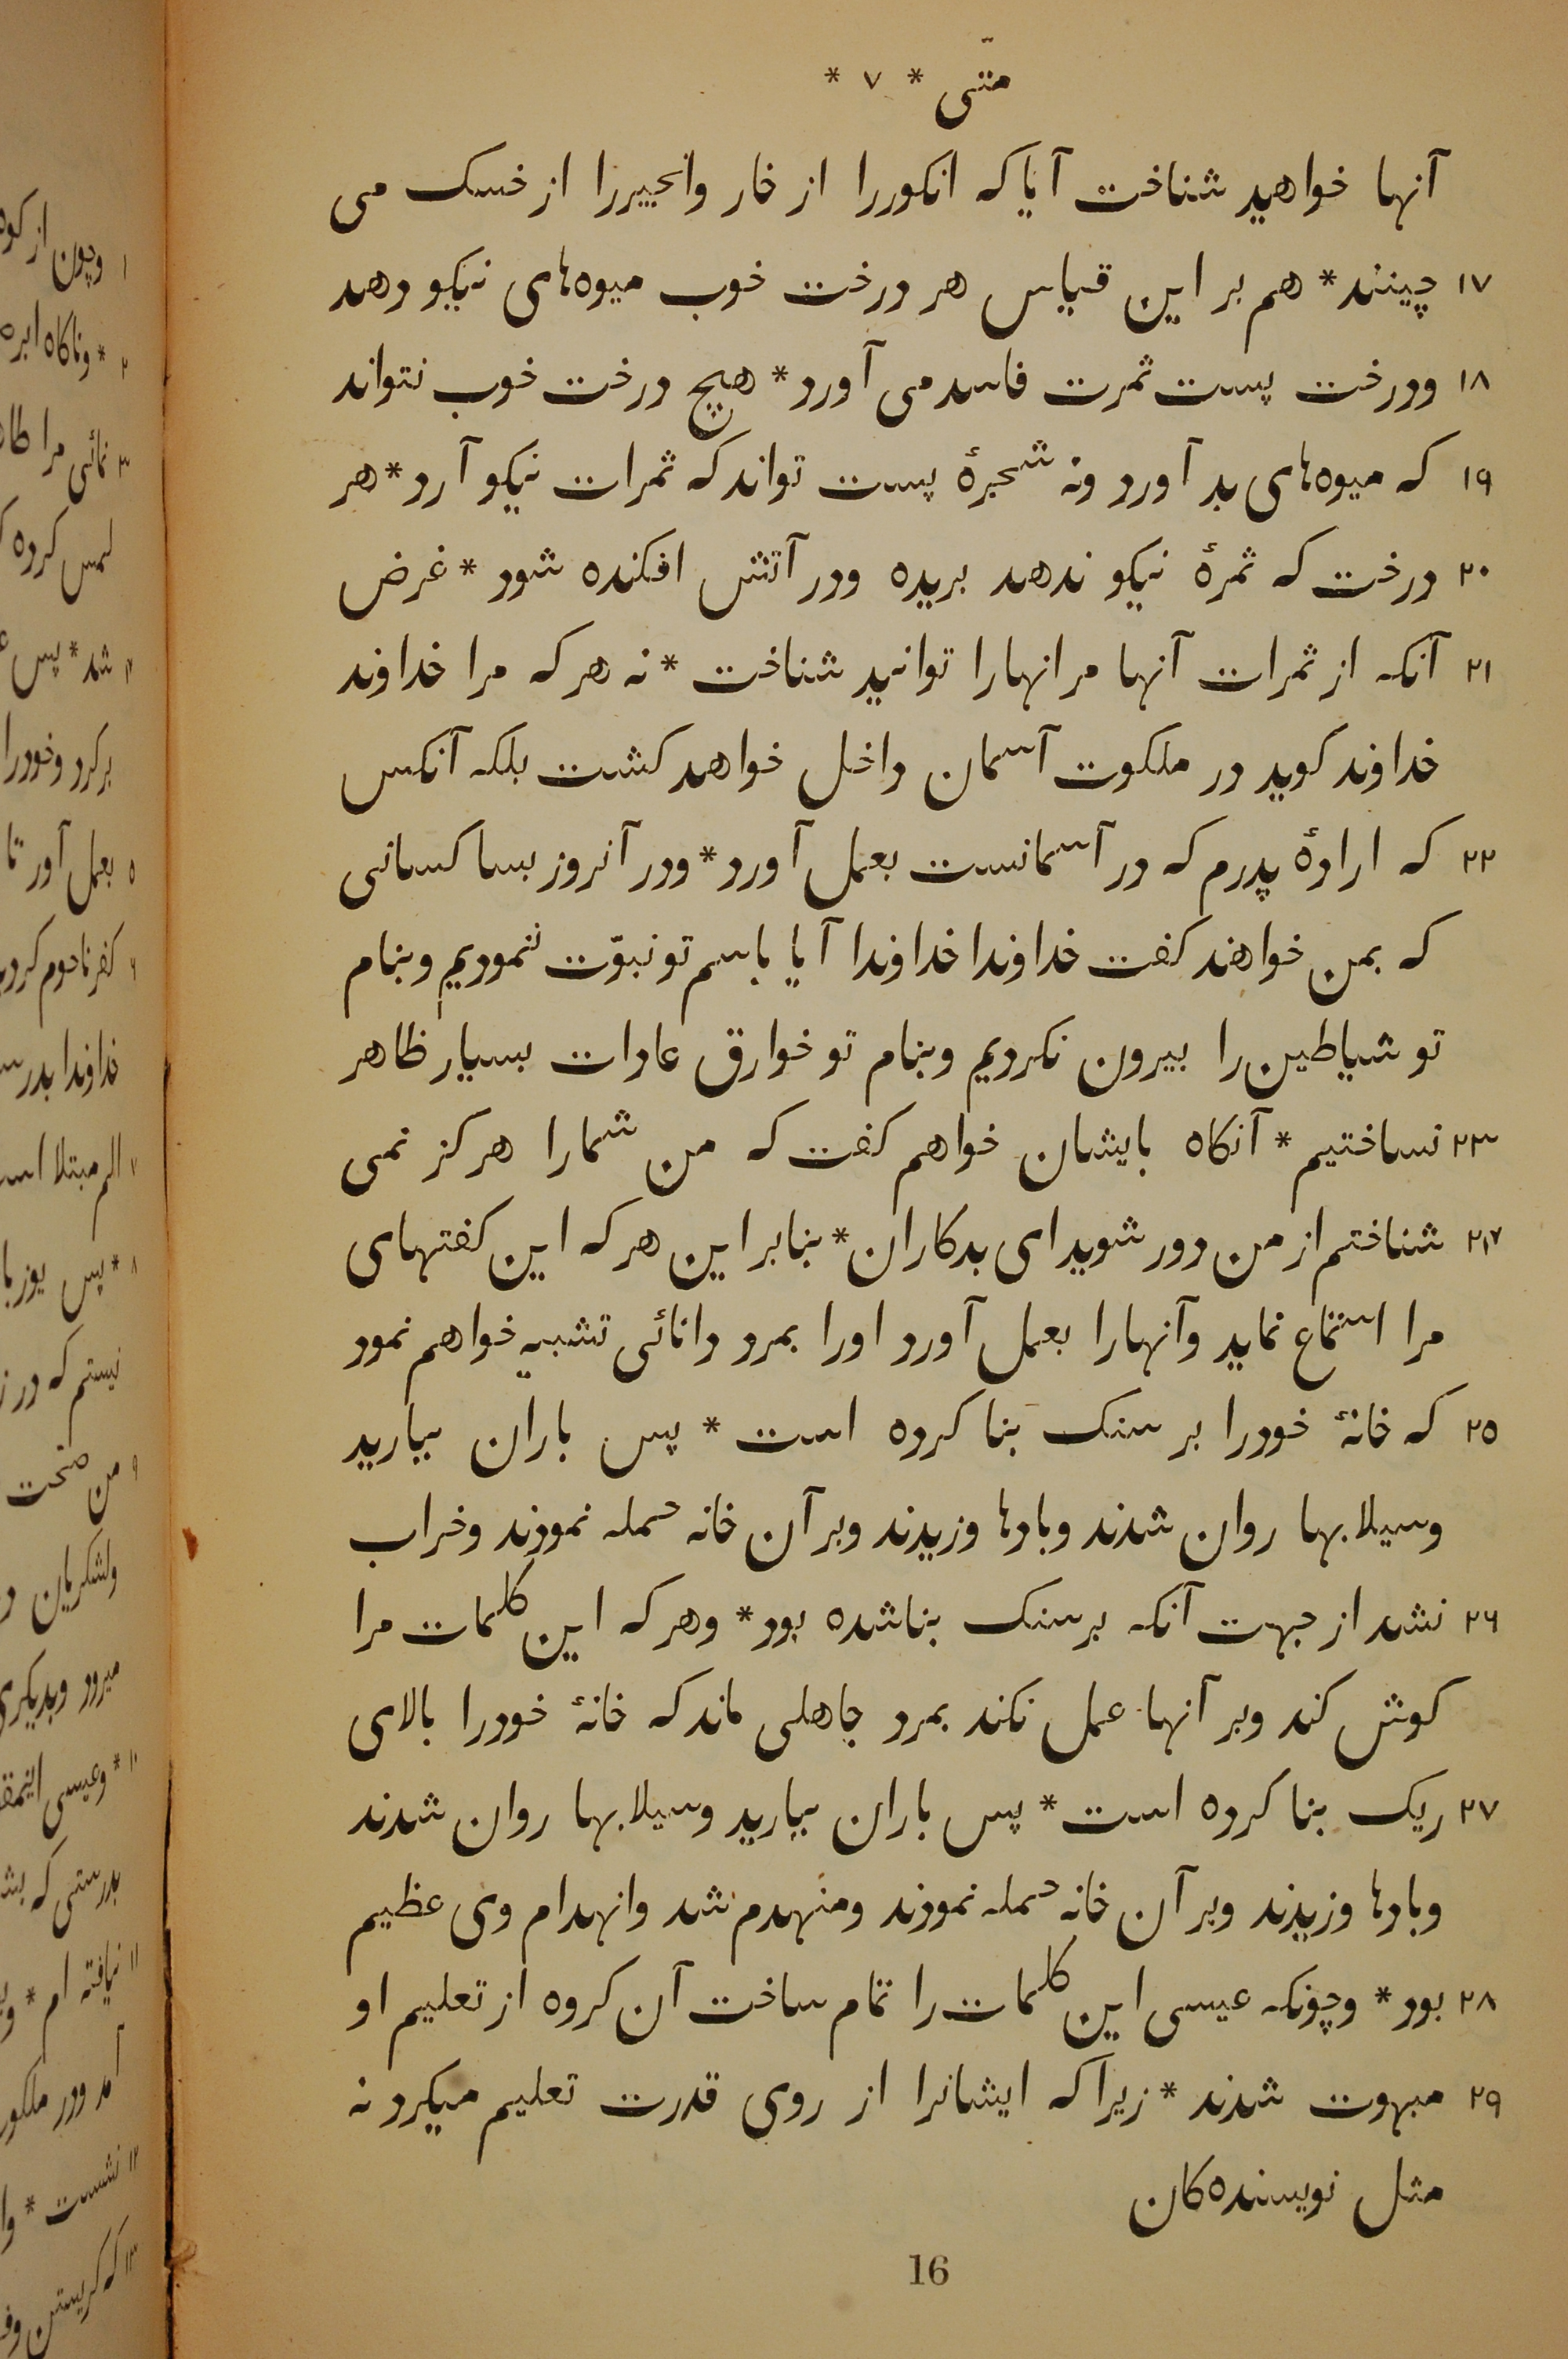 متّی * ۷ *
آنها خواهید شناخت آیا که انکوررا از خار وانجیررا از خسک می
۱۷ چینند * هم بر این قیاس هر درخت خوب میوه‌های نیکو دهد
۱۸ ودرخت پست ثمرت فاسد می آورد * هیچ درخت خوب نتواند
۱۹ که میوه‌های بد آورد ونه شجرهٔ پست تواند که ثمرات نیکو آرد * هر
۲۰ درخت که ثمرهٔ نیکو ندهد بریده ودر آتش افکنده شود * غرض
۲۱ آنکه از ثمرات آنها مرانهارا توانید شناخت * نه هر که مرا خداوند
خداوند کوید در ملکوت آسمان داخل خواهد کشت بلکه آنکس
۲۲ که ارادهٔ پدرم که در آسمانست بعمل آورد * ودر آنروز بسا کسانی
که بمن خواهند کفت خداوندا خداوندا آیا باسم تو نبوّت ننمودیم وبنام
تو شیاطین را بیرون نکردیم وبنام تو خوارق عادات بسیار ظاهر
۲۳ نساختیم * آنکاه بایشان خواهم کفت که من شمارا هرکز نمی
۲۴ شناختم از من دور شوید ای بدکاران * بنابر این هر که این کفتهای
مرا استماع نماید وآنهارا بعمل آورد اورا بمرد دانائی تشبیه خواهم نمود
۲۵ که خانهٔ خودرا بر سنک بنا کرده است * پس باران ببارید
وسیلابها روان شدند وبادها وزیدند وبر آن خانه حمله نمودند وخراب
۲۶ نشد از جهت آنکه بر سنک بنا شده بود * وهر که این کلمات مرا
کوش کند وبر آنها عمل نکند بمرد جاهلی ماند که خانهٔ خودرا بالای
۲۷ ریک بنا کرده است * پس باران ببارید وسیلابها روان شدند
وبادها وزیدند وبر آن خانه حمله نمودند ومنهدم شد وانهدام وی عظیم
۲۸ بود * وچونکه عیسی این کلمات را تمام ساخت آن کروه از تعلیم او
۲۹ مبهوت شدند * زیرا که ایشانرا از روی قدرت تعلیم میکرد نه
مثل نویسنده‌کان
16